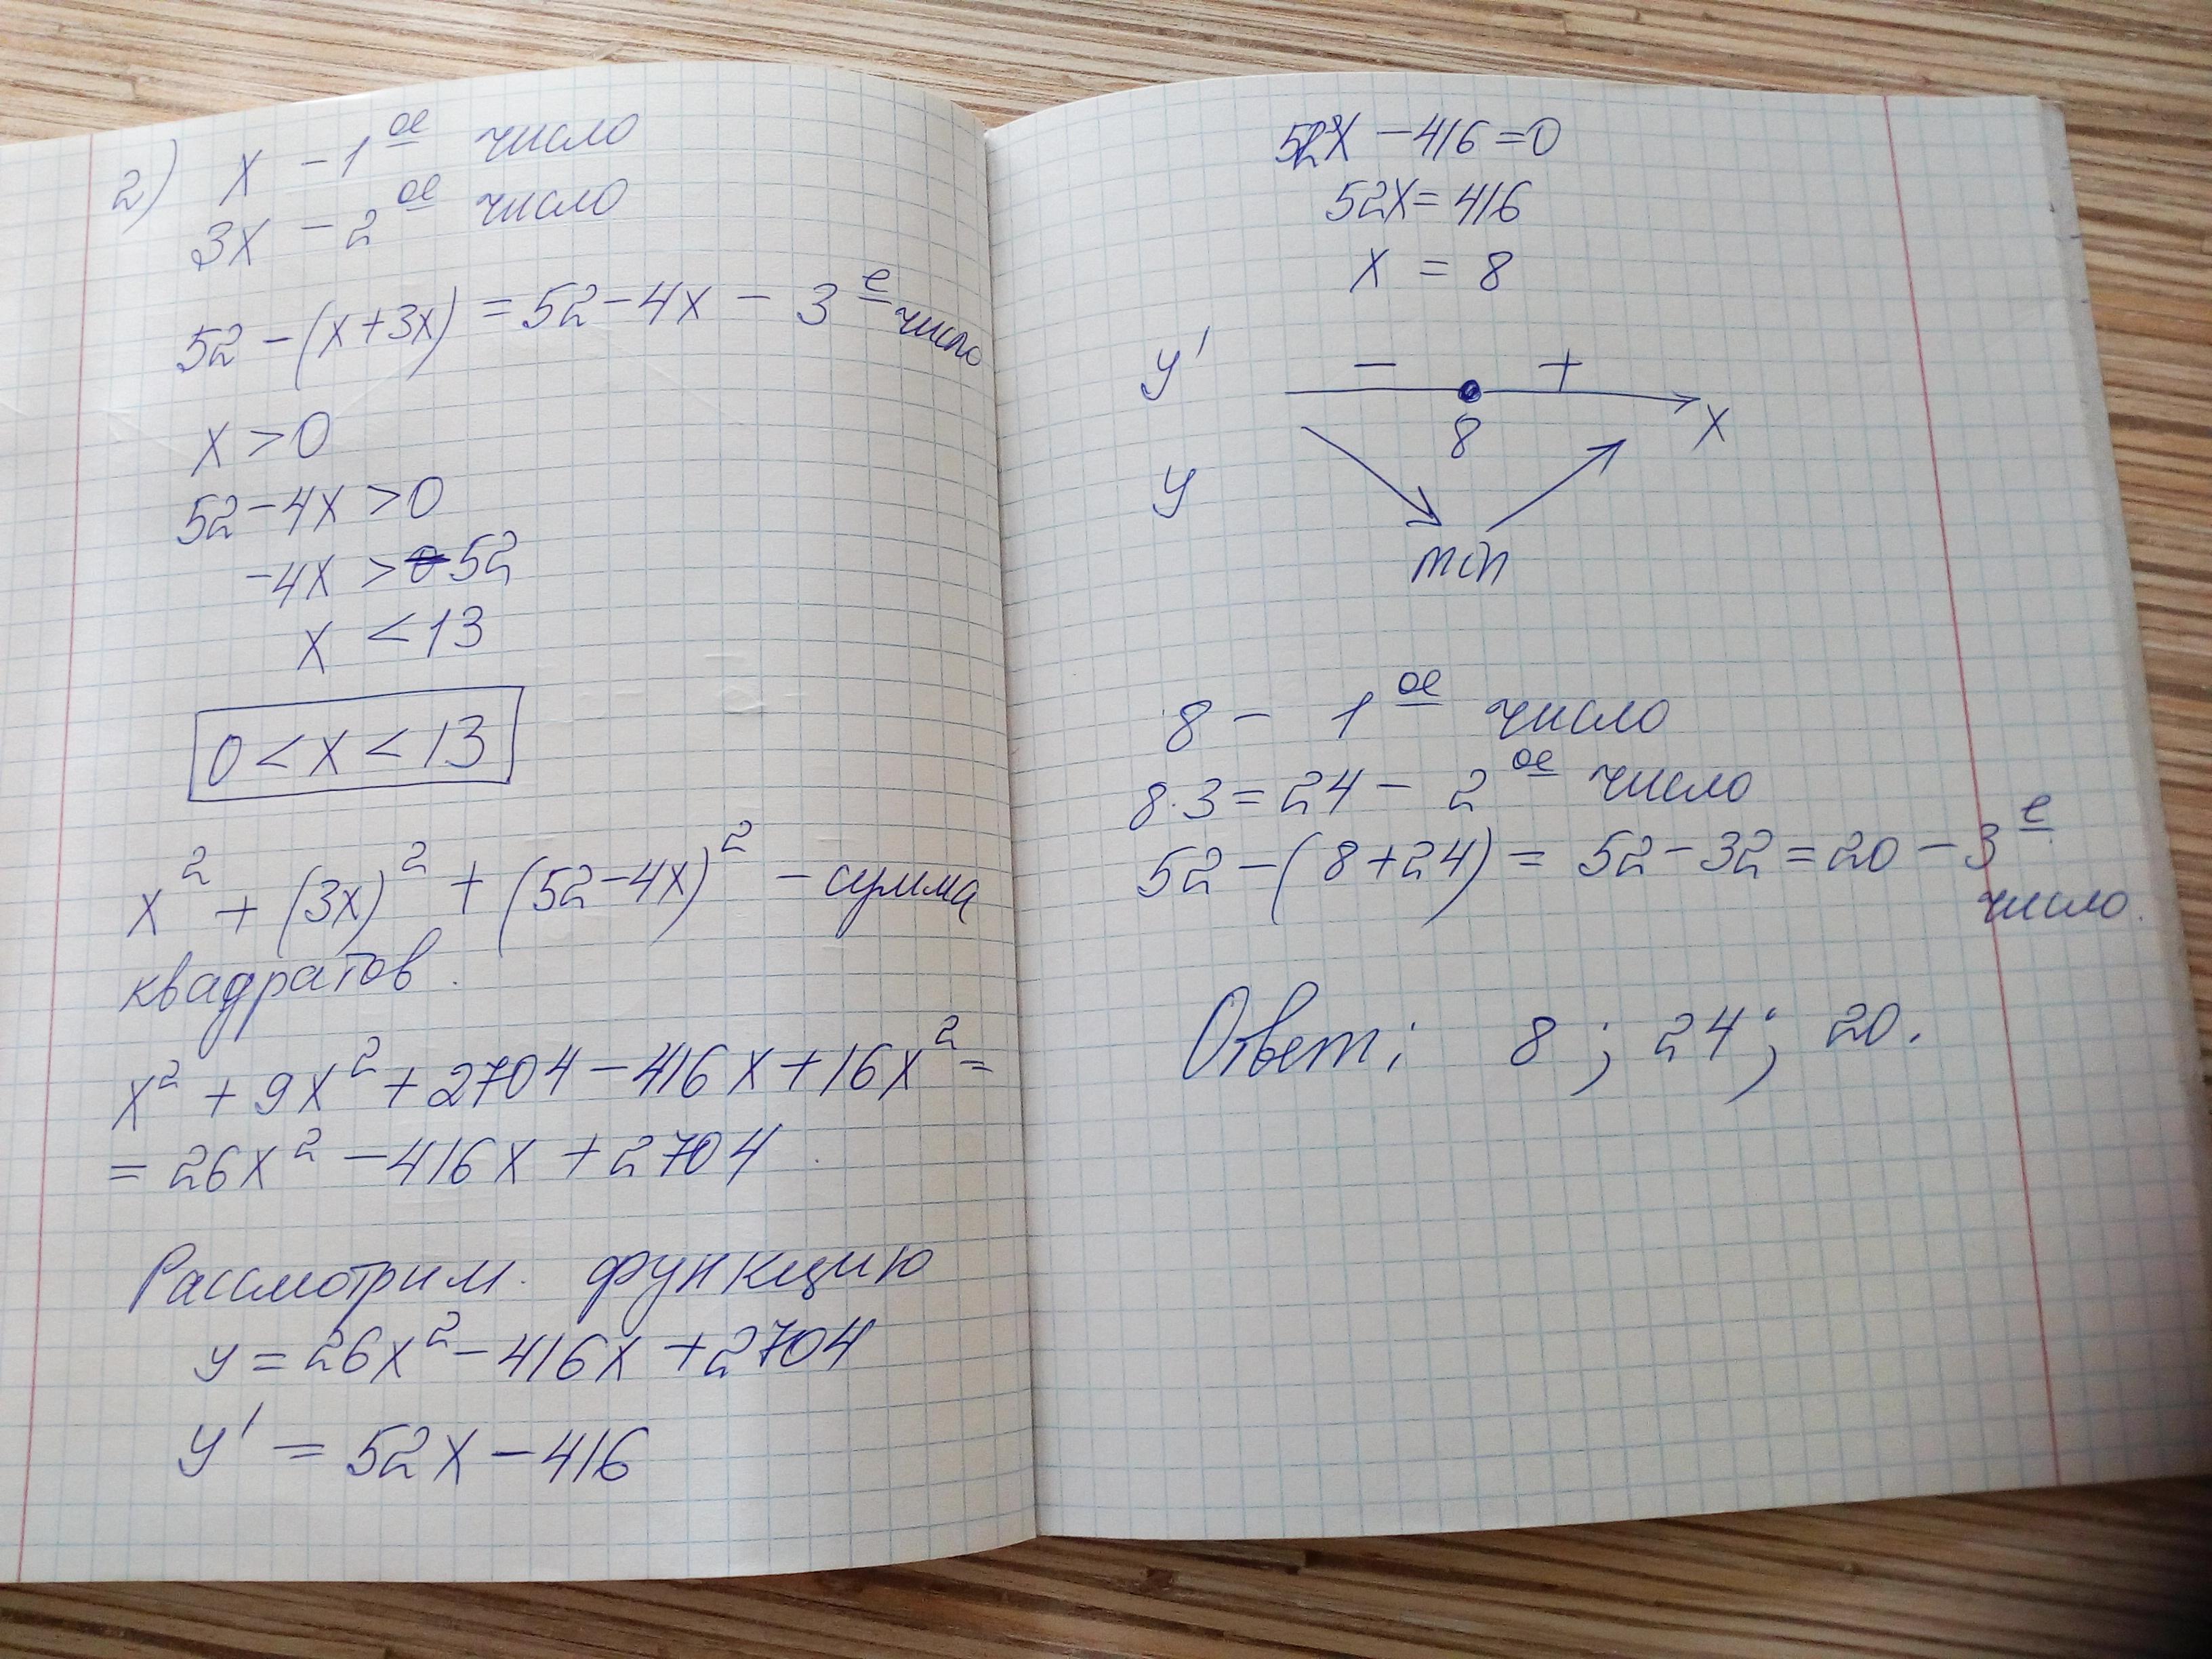 2) x - 1ое число
3x - 2ое число
52 - (x+3x) = 52 - 4x - 3е число
x > 0
52 - 4x > 0
-4x > 0 52
x < 13
0 < x < 13
x² + (3x)² + (52-4x)² - сумма
квадратов.
x² + 9x² + 2704 - 416x + 16x² =
= 26x² - 416x + 2704
Рассмотрим функцию
y = 26x² - 416x + 2704
y' = 52x - 416
52x - 416 = 0
52x = 416
x = 8
y' - +
8 x
y
min
8 - 1ое число
8·3 = 24 - 2ое число
52 - (8+24) = 52 - 32 = 20 - 3е
число.
Ответ: 8; 24; 20.